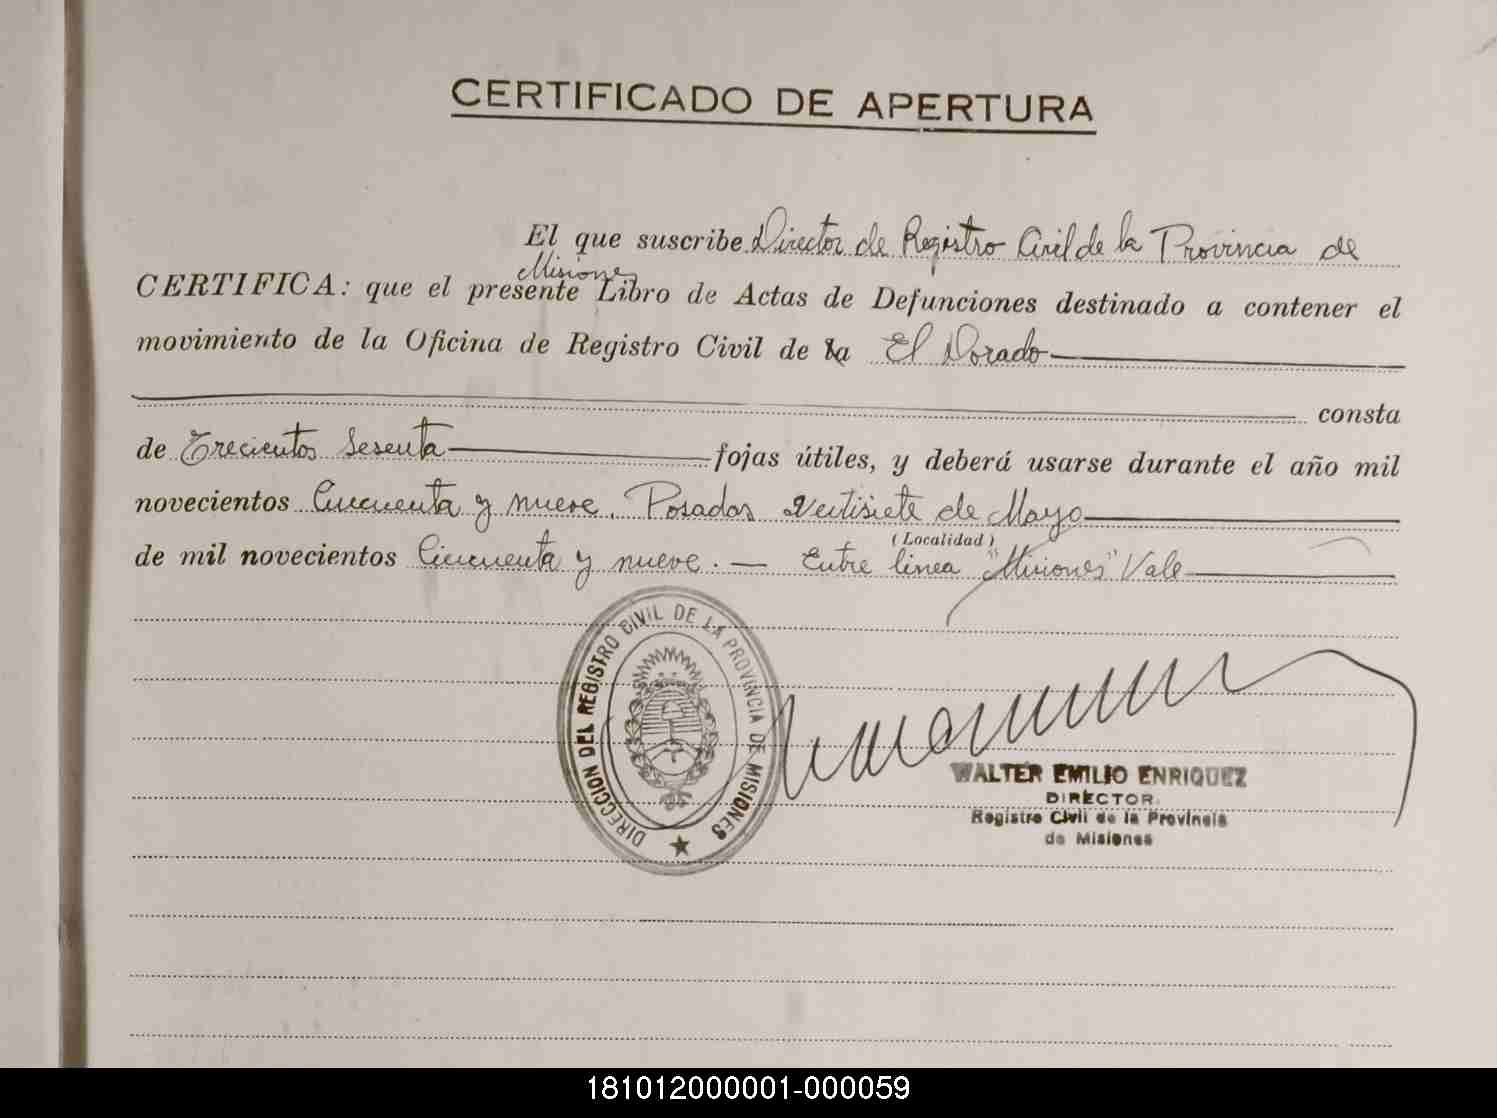 CERTIFICADO DE APERTURA
El que suscribe Director de Registro Civil de la Provincia de
Misiones
CERTIFICA: que el presente Libro de Actas de Defunciones destinado a contener el
movimiento de la Oficina de Registro Civil de la El Dorado
consta
de Trecientos Sesenta fojas útiles, y deberá usarse durante el año mil
novecientos Cincuenta y nueve. Posadas Veitisiete de Mayo
(Localidad)
de mil novecientos Cincuenta y nueve. — Entre linea "Misiones" Vale
DIRECCION DEL REGISTRO CIVIL DE LA PROVINCIA DE MISIONES
WALTER EMILIO ENRIQUEZ
DIRECTOR
Registro Civil de la Provincia
de Misiones
181012000001-000059